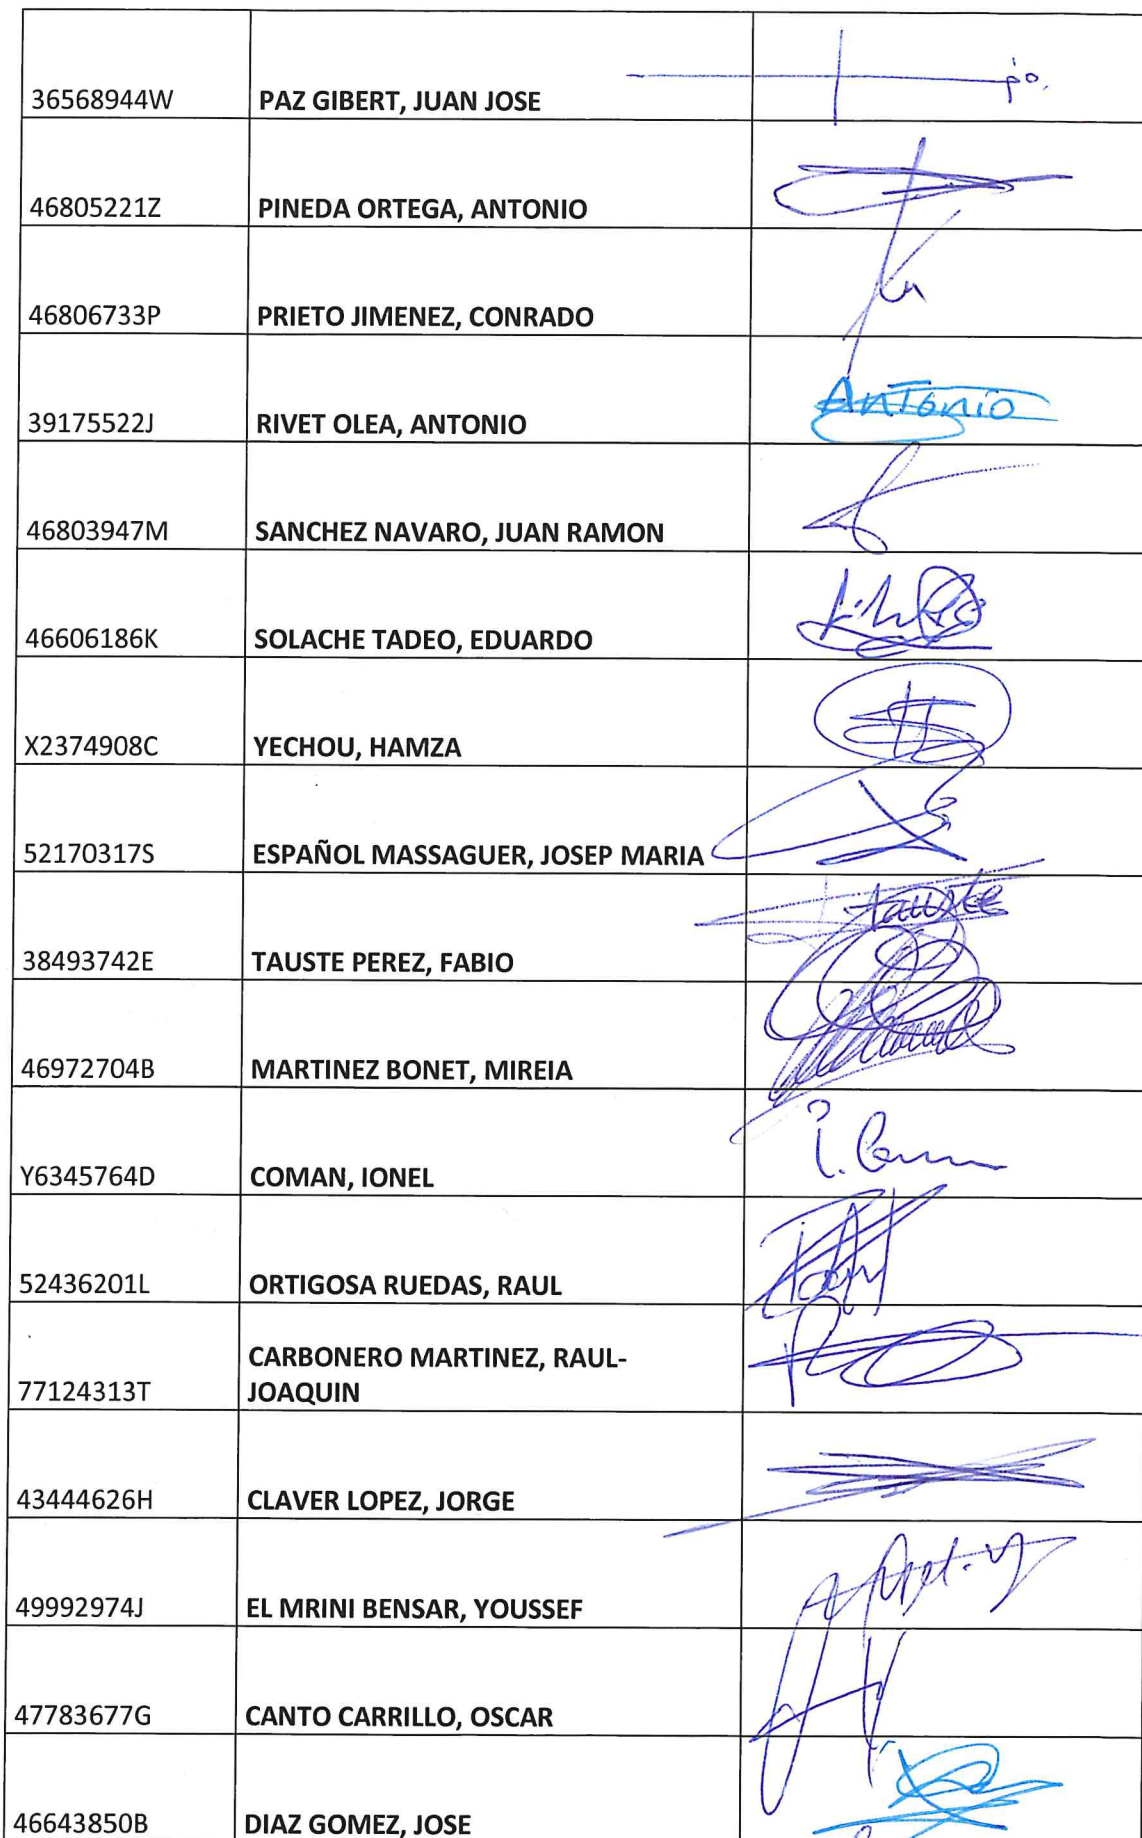 36568944W PAZ GIBERT, JUAN JOSE
46805221Z PINEDA ORTEGA, ANTONIO
46806733P PRIETO JIMENEZ, CONRADO
39175522J RIVET OLEA, ANTONIO Antonio
46803947M SANCHEZ NAVARO, JUAN RAMON
46606186K SOLACHE TADEO, EDUARDO
X2374908C YECHOU, HAMZA
52170317S ESPAÑOL MASSAGUER, JOSEP MARIA
38493742E TAUSTE PEREZ, FABIO Tauste
46972704B MARTINEZ BONET, MIREIA
Y6345764D COMAN, IONEL
52436201L ORTIGOSA RUEDAS, RAUL
CARBONERO MARTINEZ, RAUL-
77124313T JOAQUIN
43444626H CLAVER LOPEZ, JORGE
49992974J EL MRINI BENSAR, YOUSSEF
47783677G CANTO CARRILLO, OSCAR
46643850B DIAZ GOMEZ, JOSE